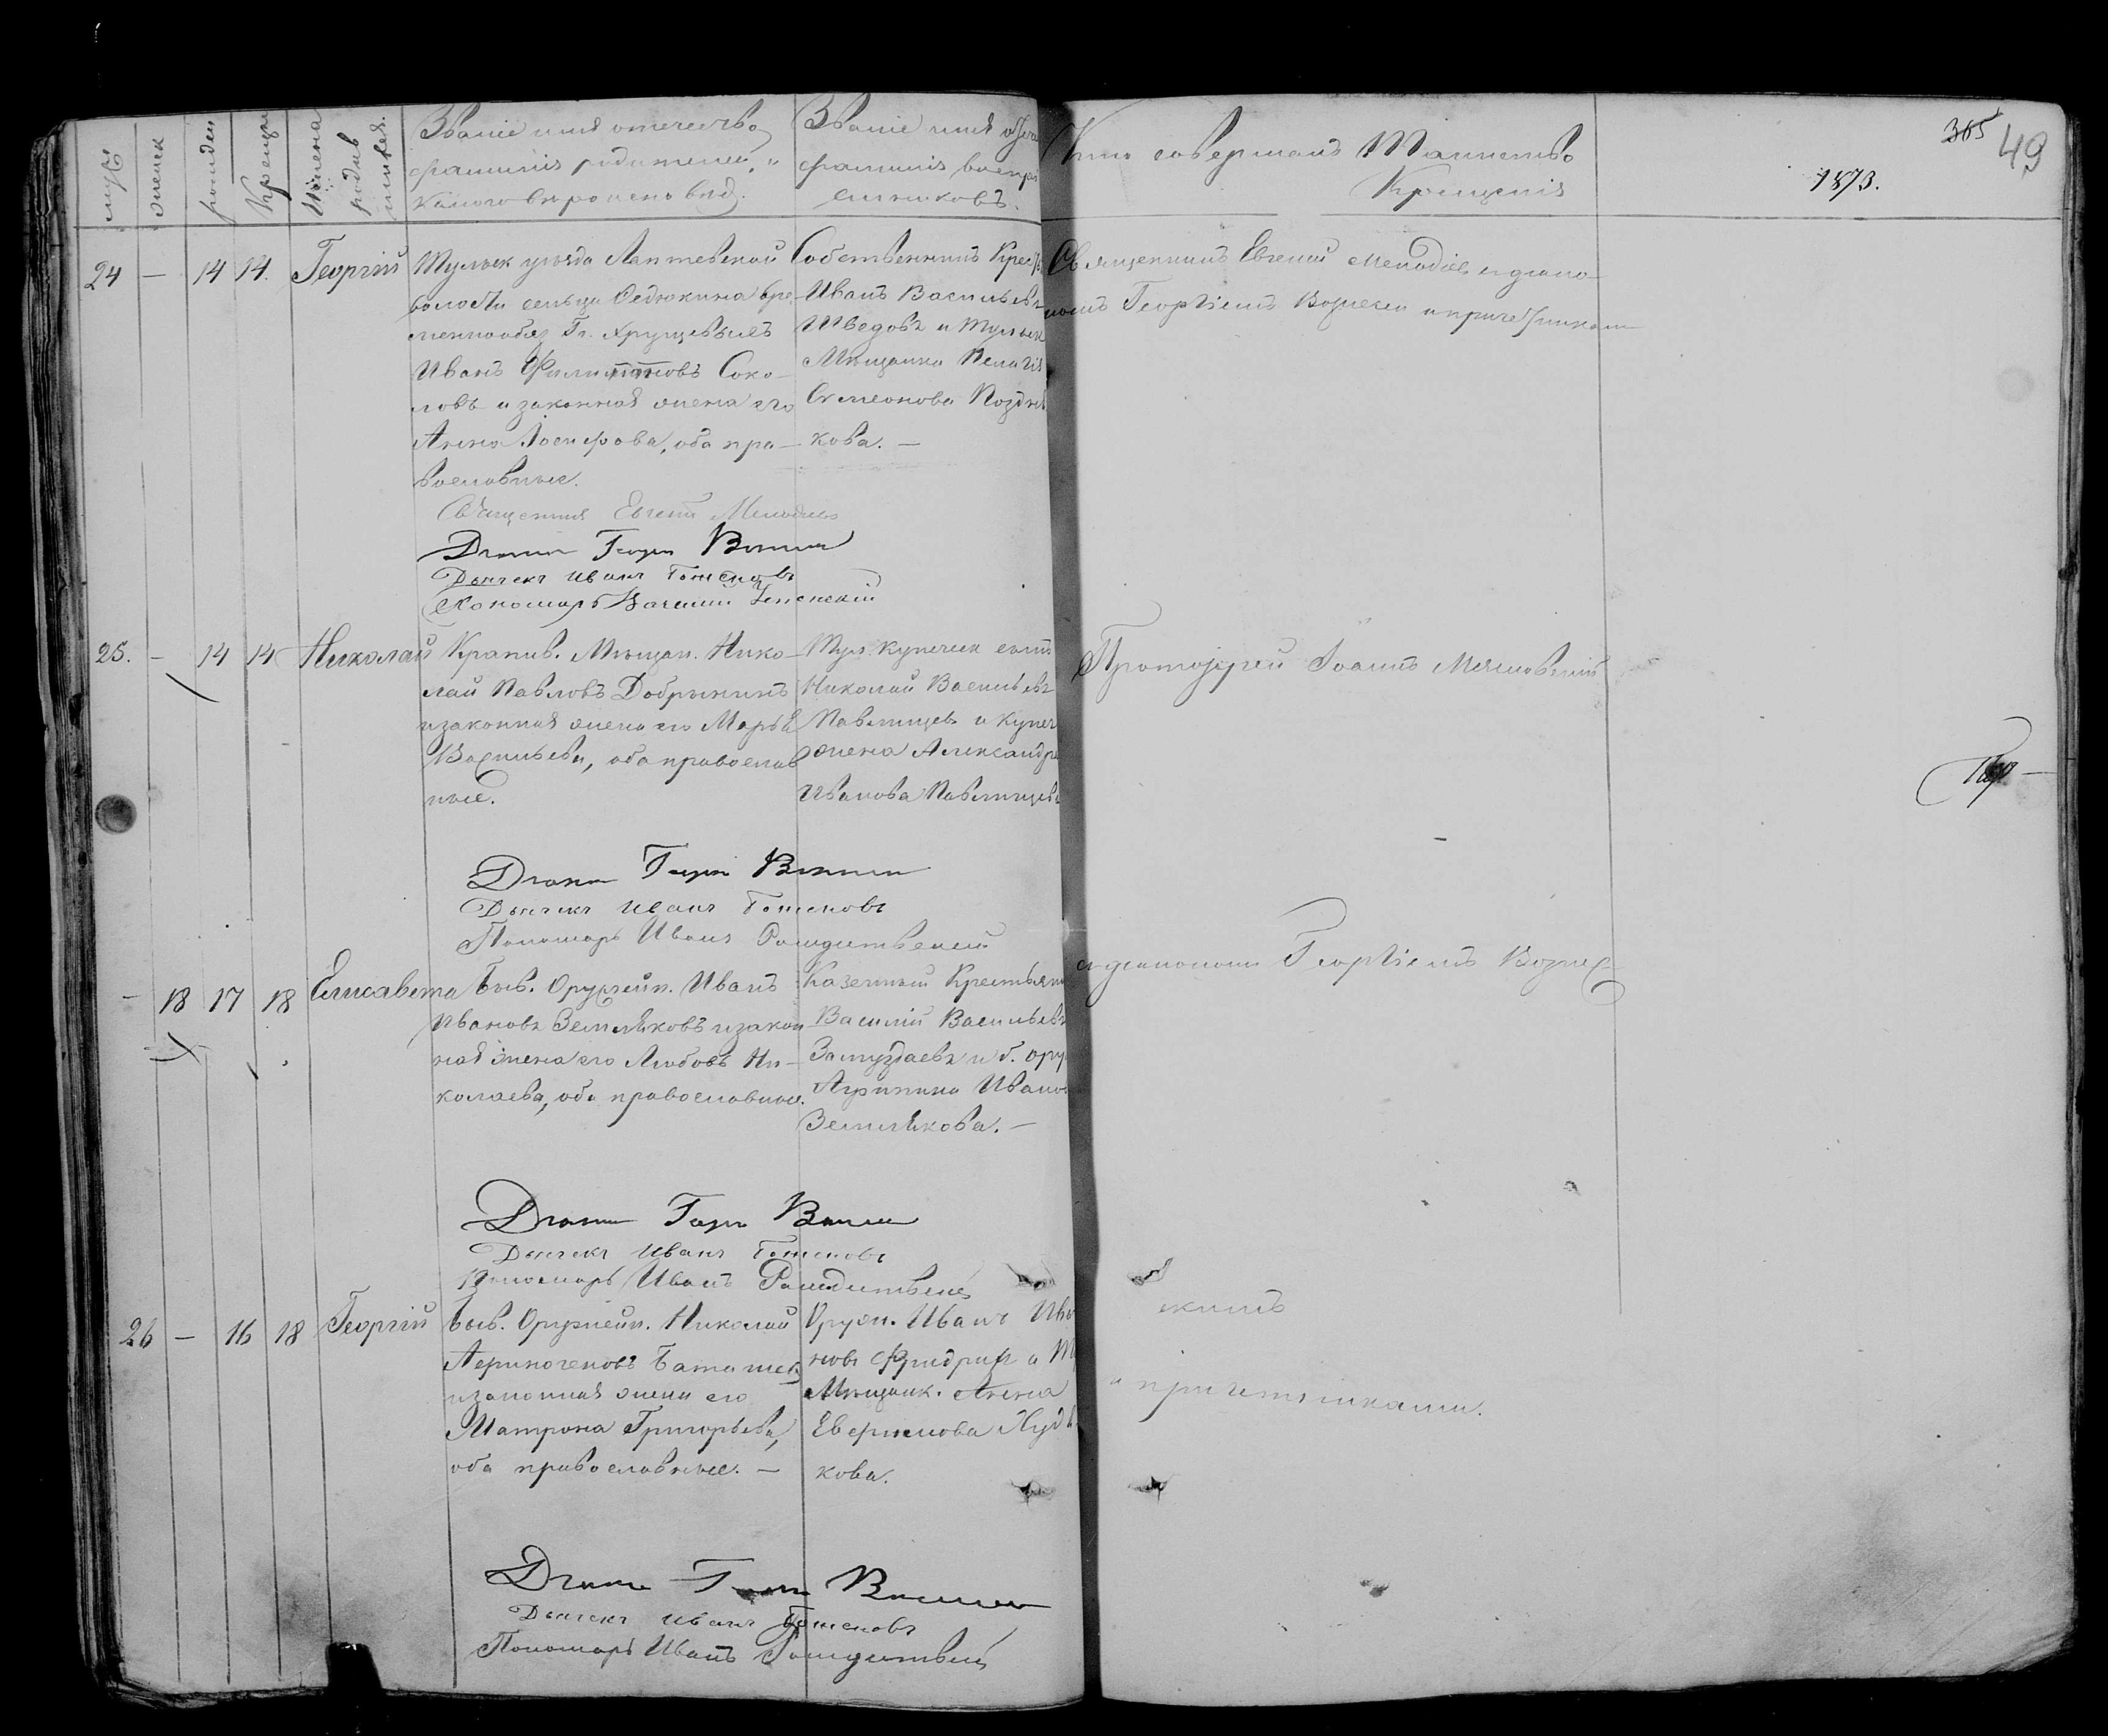 мужс
женск
рожден
Крещен
Имена родив шихся.
Званіе имя отечество
фамилія родителей, и
какого вѣроисповѣд.
Званіе имя отче
фамилія воспрі
емниковъ.
Кто совершалъ Таинство
Крещенія
1873.
365
49
24 — 14 14. Георгій
Тульск уѣзда Лаптевской
волости сельца Федюкина вре-
меннообяз Гг. Хрущевыхъ
Иванъ Филипповъ Соко-
ловъ и законная жена его
Анна Іосифова, оба пра-
вославные.
Собственникъ Крест
Иванъ Васильевъ
Шведовъ и Тульск
Мѣщанка Пелагія
Симеонова Поздня
кова. —
Священникъ Евгеній Меѳодіевъ и діако-
номъ Георгіемъ Вознесен и причетниками
Священник Евгеній Меѳодіевъ
Діакон Георгій
Дьячекъ Иванъ
Пономарь Василій Успенскій
25. — 14 14 Николай
Крапив. Мѣщан. Нико-
лай Павловъ Добрынинъ
и законная жена его Марья
Васильева, оба православ
ные.
Тул. Купеческ сынъ
Николай Васильевъ
Павлищевъ и Купеч
жена Александра
Иванова Павлищева
Протоіерей Іоаннъ Мясновскій
Діакон Георгій
Дьячекъ Иванъ
Пономарь Иванъ Рождественскій
— 18 17 18 Елисавета
Быв. Оружейн. Иванъ
Ивановъ Земляковъ и закон
ная жена его Любовь Ни-
колаева, оба православные.
Казенный Крестьянин
Василій Васильевъ
и б. оруж
Агрипина Иванов
Землякова. —
съ діакономъ Георгіемъ Вознес-
Діакон Георгій
Дьячекъ Иванъ
Пономарь Иванъ Рождественск
26 — 16 18 Георгій
Быв. Оружейн. Николай
Аѳиногеновъ Баташев
и законная жена его
Матрона Григорьева,
оба православные. —
Оруж. Иванъ Ива
новъ Фридрих и Т
Мѣщанк. Анна
Евфимова Худя
кова.
скимъ
и причетниками.
Діакон Георгій
Дьячекъ Иванъ
Пономарь Иванъ Рождествен